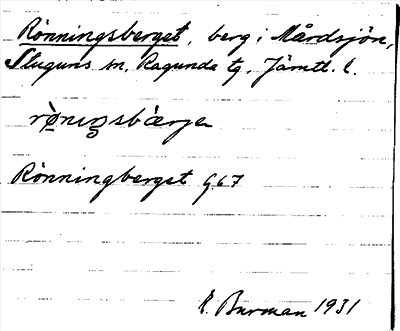 Rönningsberget, berg i Mårdsjön,
Stuguns sn. Ragunda tg. Jämtl. l.
Rönningberget G67
E. Burman 1931